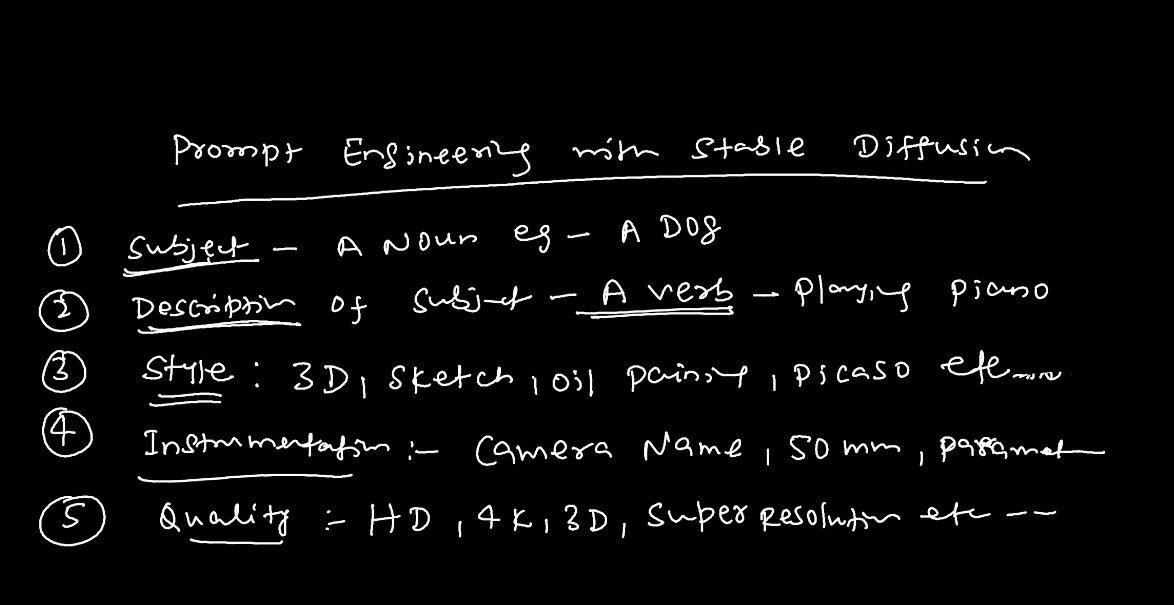 Prompt Engineering with Stable Diffusion
① Subject - A Noun eg - A Dog
② Description of Subject - A verb - Playing piano
③ Style : 3D, Sketch, oil paining, picaso etc....
④ Instrumentation :- Camera Name, 50 mm, paramet
⑤ Quality :- HD, 4K, 3D, Super Resolution etc --